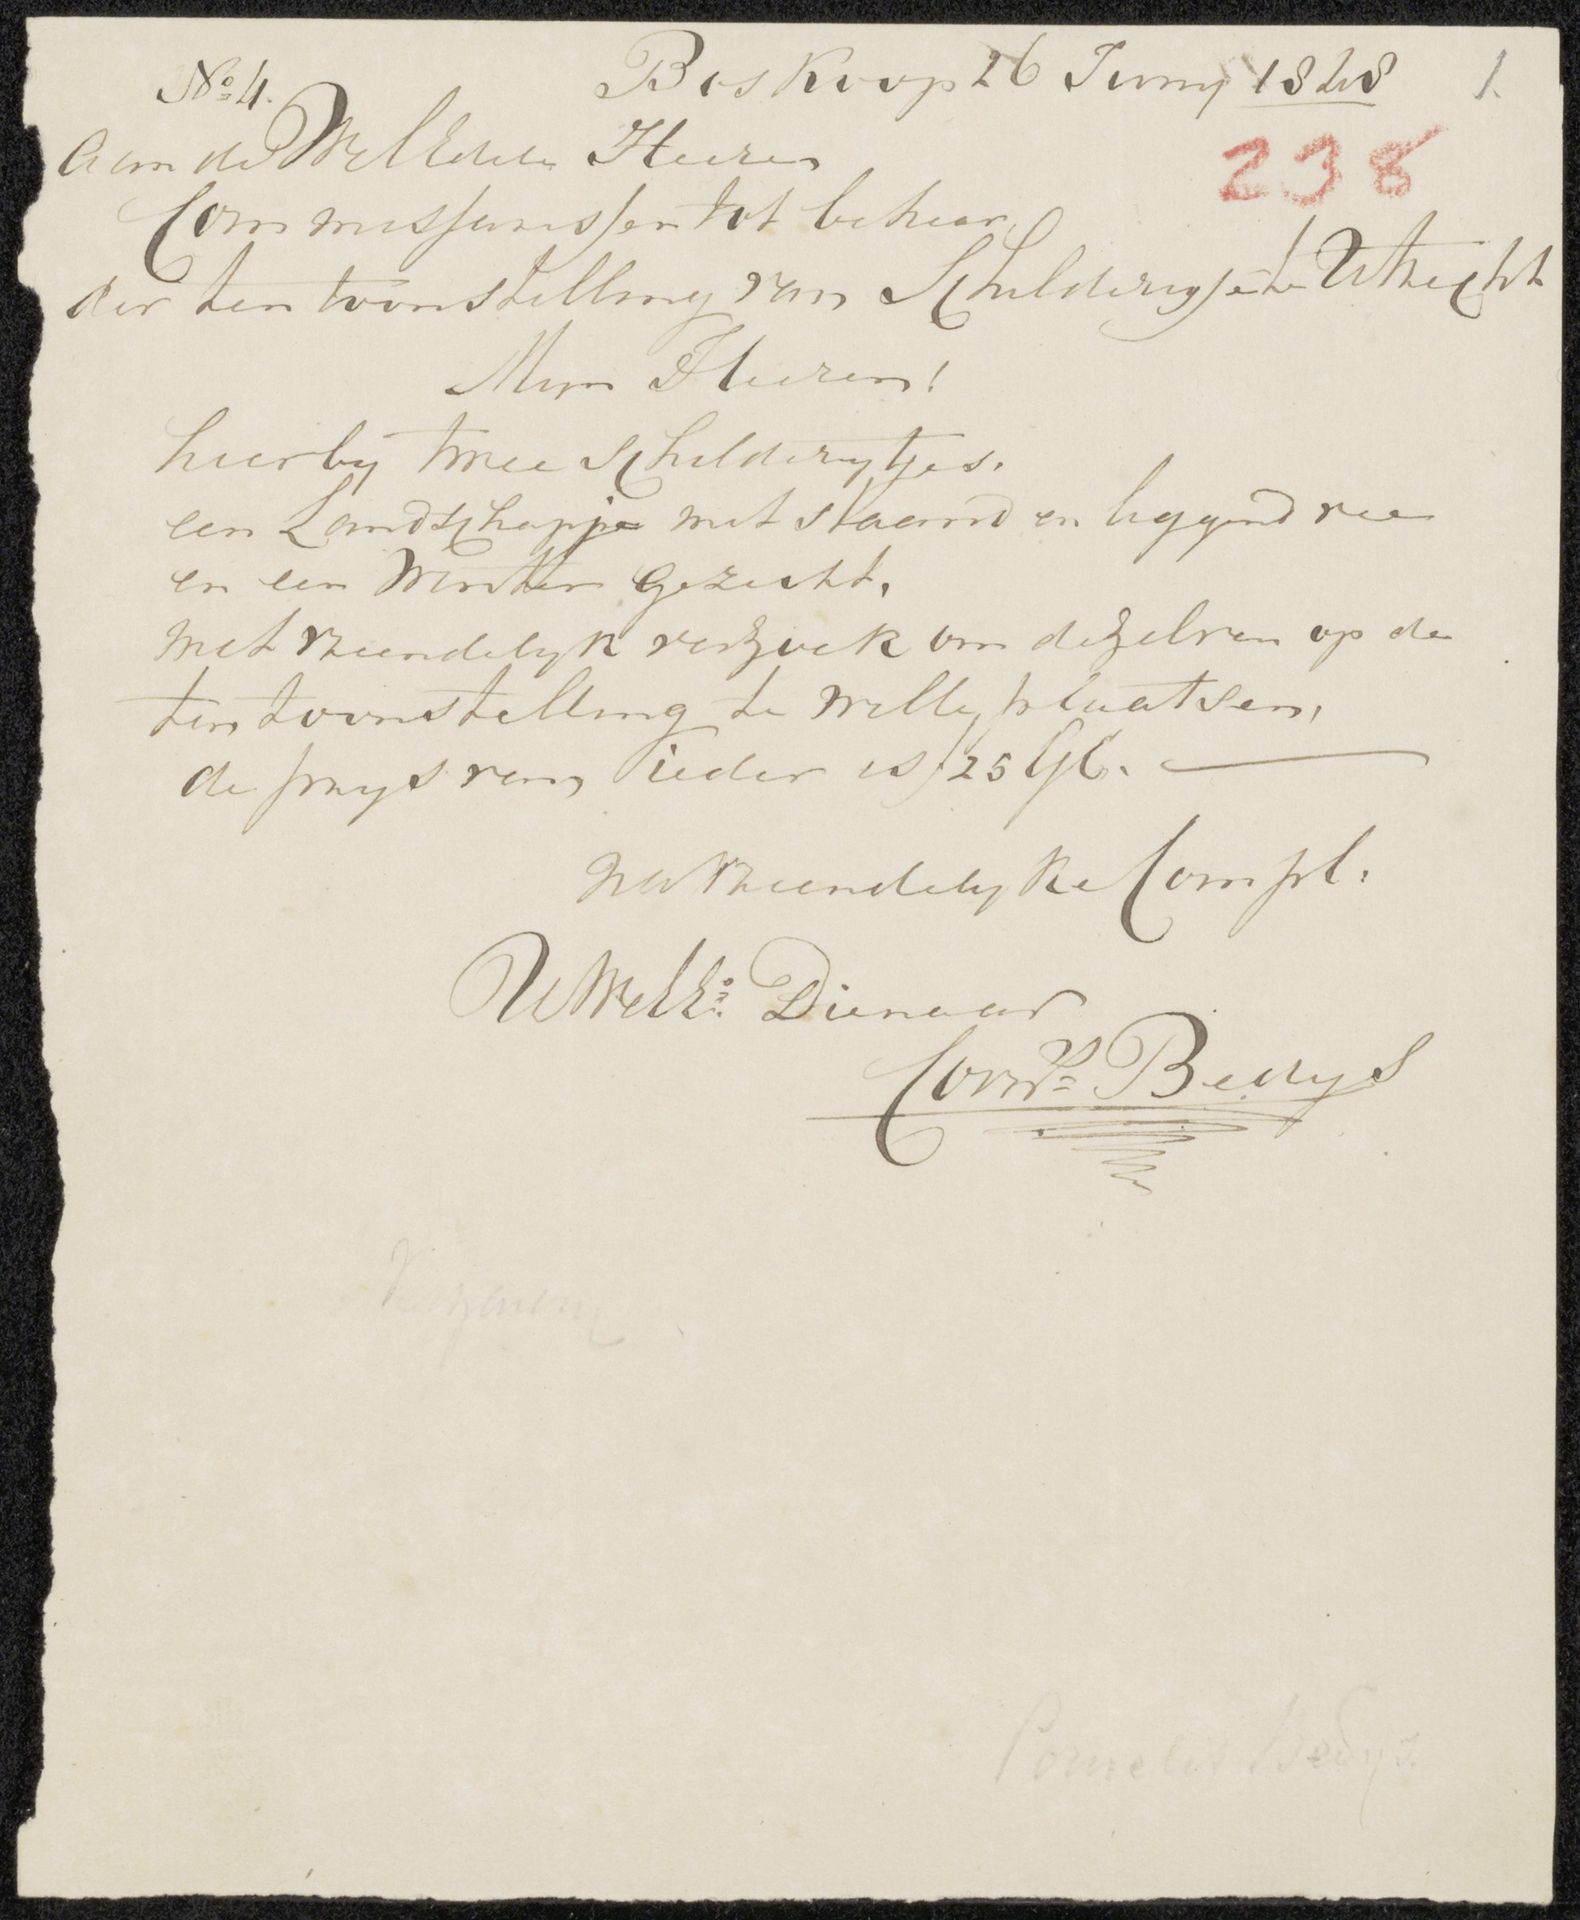 No 4. Boskoop 26 Juny 1828 1.
238
Aan de WelEdele Heeren
Commissarissen tot beheer
der ten toonstelling van Schilderyen te Utrecht
Myn Heeren!
hierby twee schilderytjes.
een Landschapje met staand en liggend vee
en een Winter gezicht,
met vriendelyk verzoek om dezelven op de
ten toonstelling te wille plaatsen,
de prys van ieder is f 25 Gl.
na vriendelyke Compl.
UWelEd: Dienaar
Corns Bedys
Cornelis Bedijs.